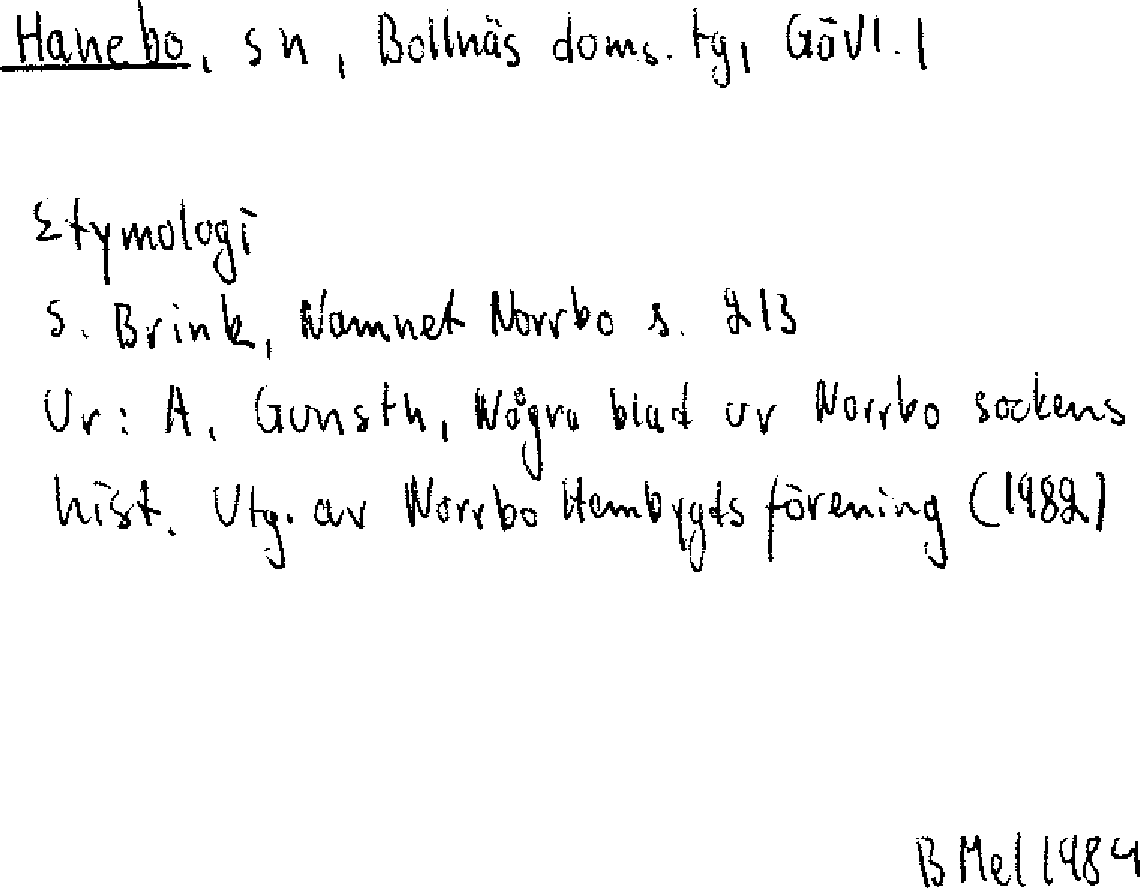 Hanebo, sn, Bollnäs doms. tg, Gävl. l
Etymologi
S. Brink, Namnet Norrbo s. 213
Ur: A. Gunsth, Några blad ur Norrbo sockens
hist. Utg. av Norrbo Hembygdsförening (1982)
B Mel 1984